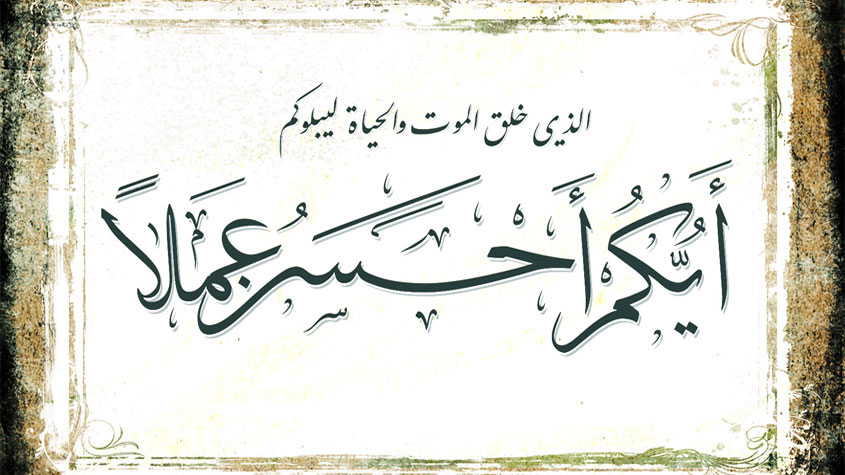 الذي خلق الموت والحياة ليبلوكم
أَيُّكُمْ أَحْسَنُ عَمَلاً